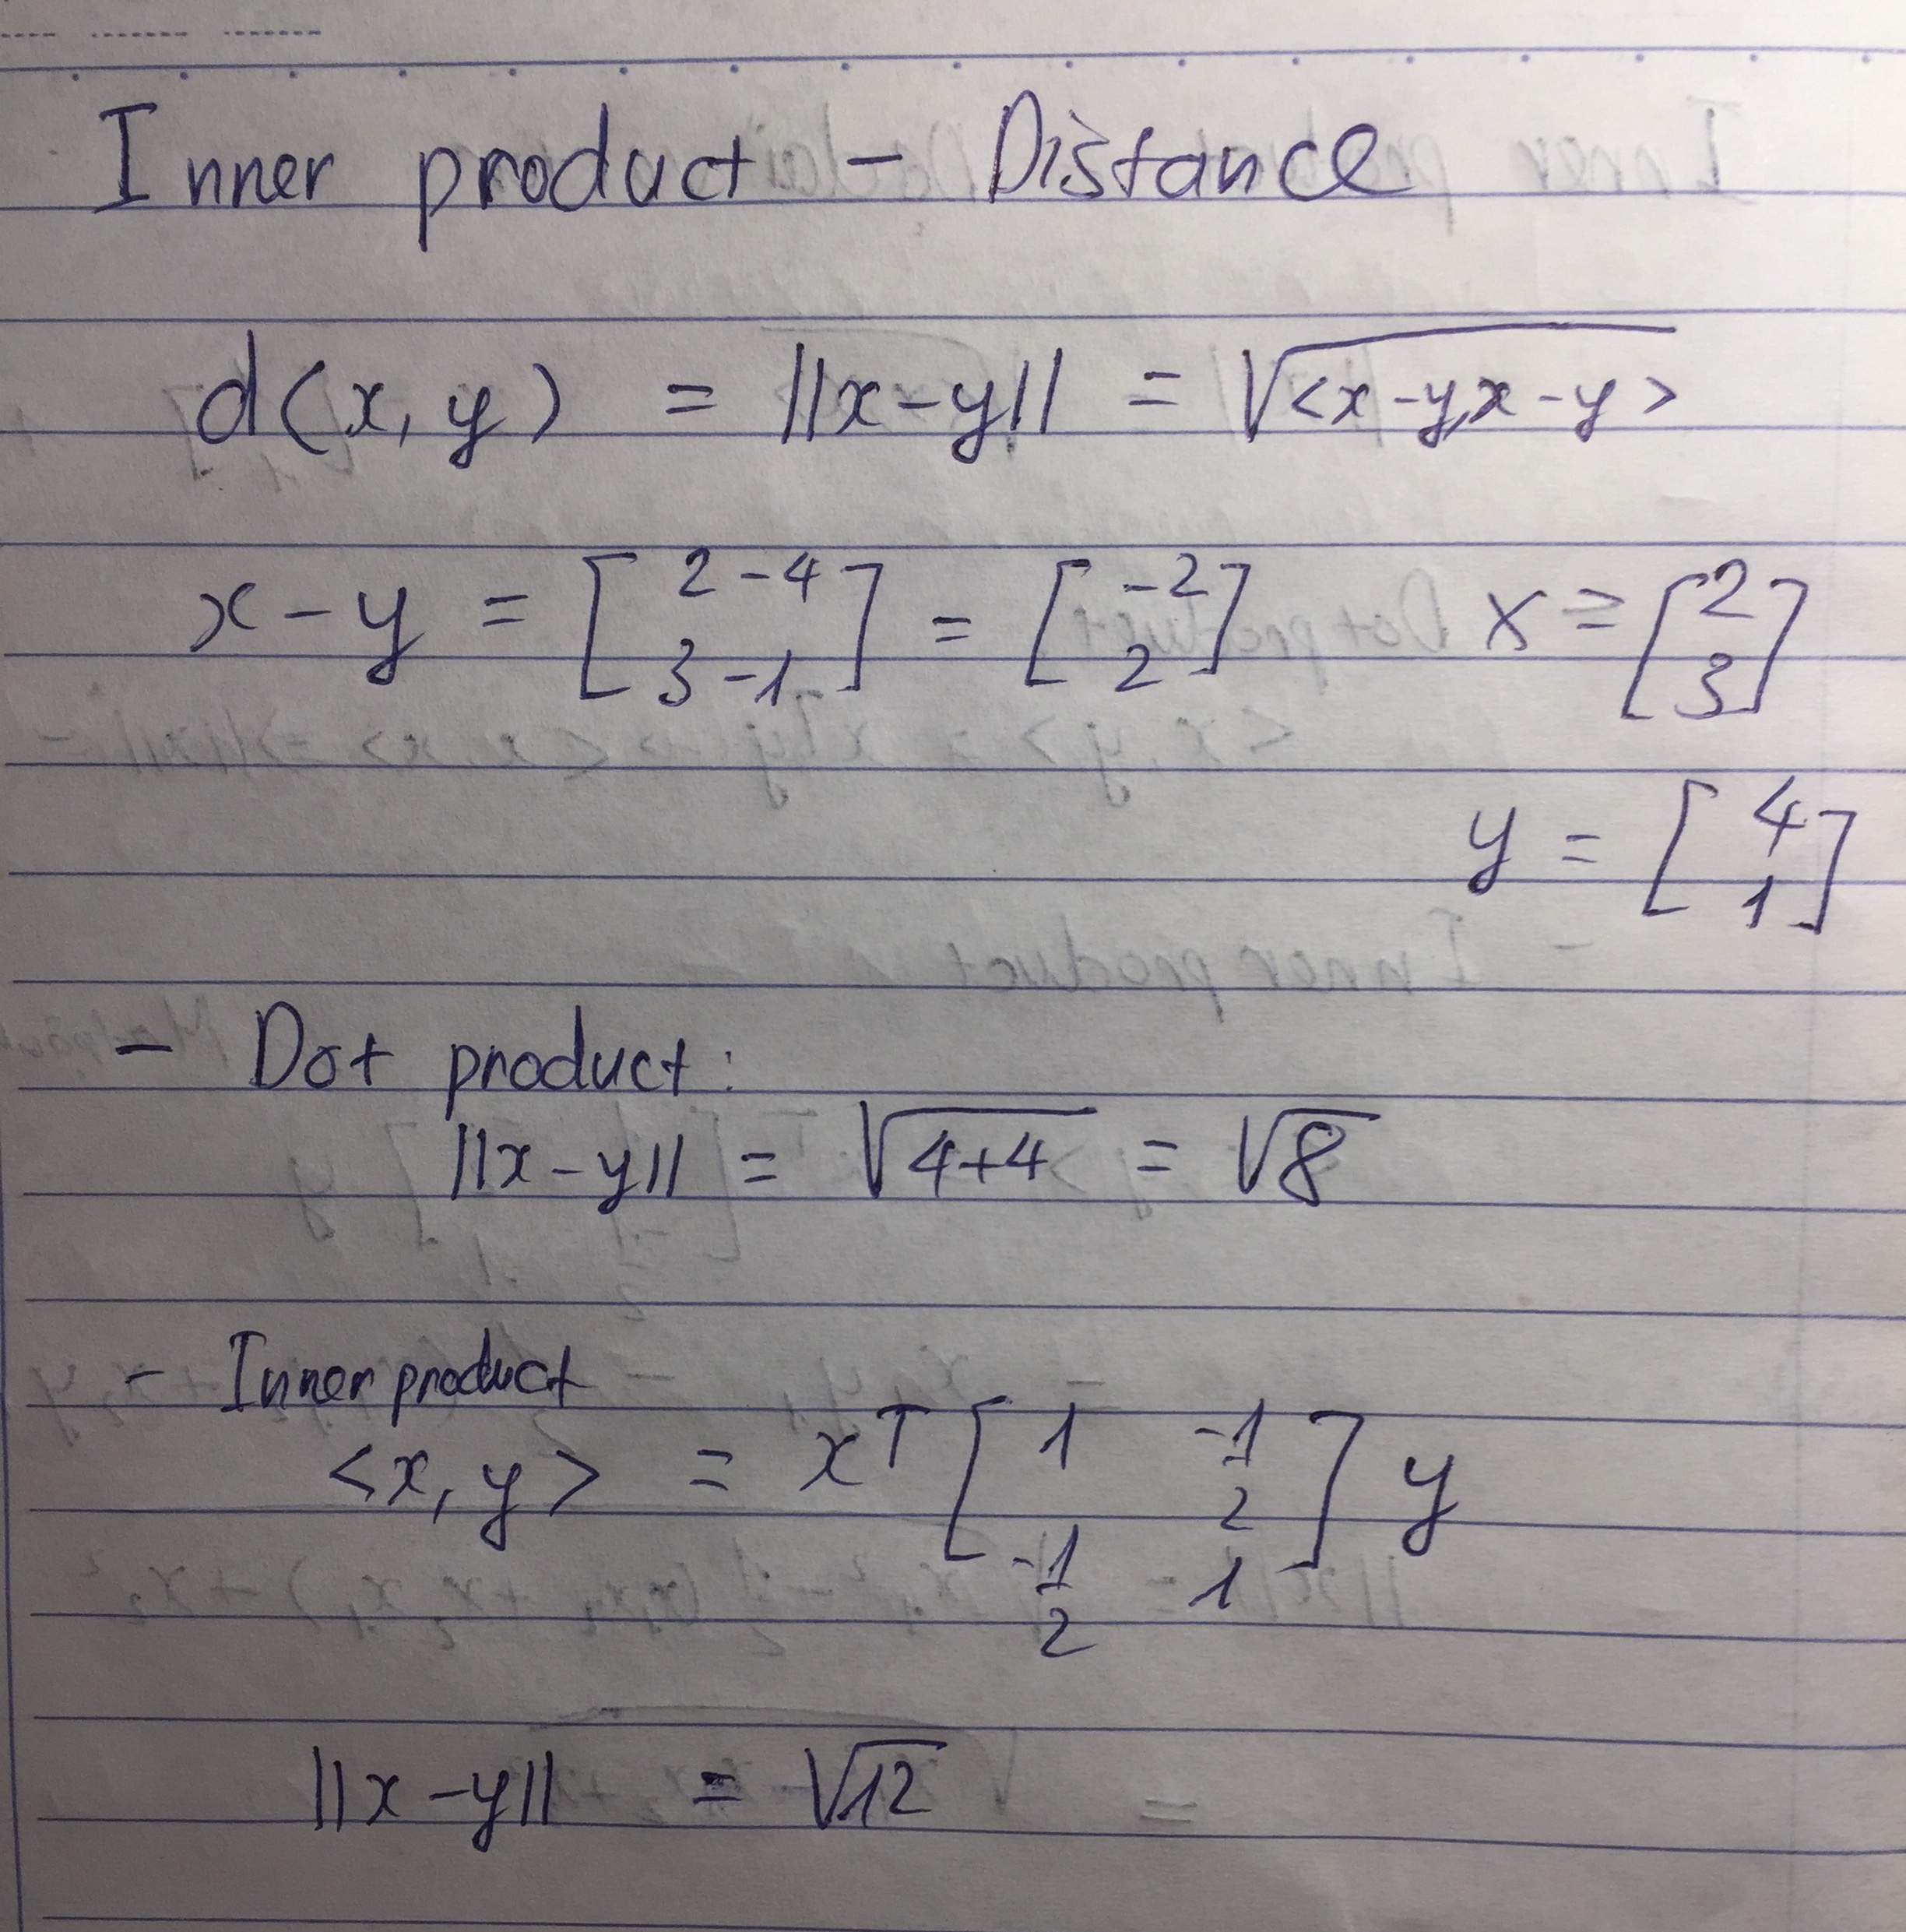 Inner product - Distance
d(x, y) = ||x-y|| = √<x-y,x-y>
x-y = [2-4 3-1] = [-2 2] x = [2 3]
y = [4 1]
- Dot product:
||x-y|| = √4+4 = √8
- Inner product
<x, y> = x^T [1 -1/2 -1/2 1] y
||x-y|| = √12